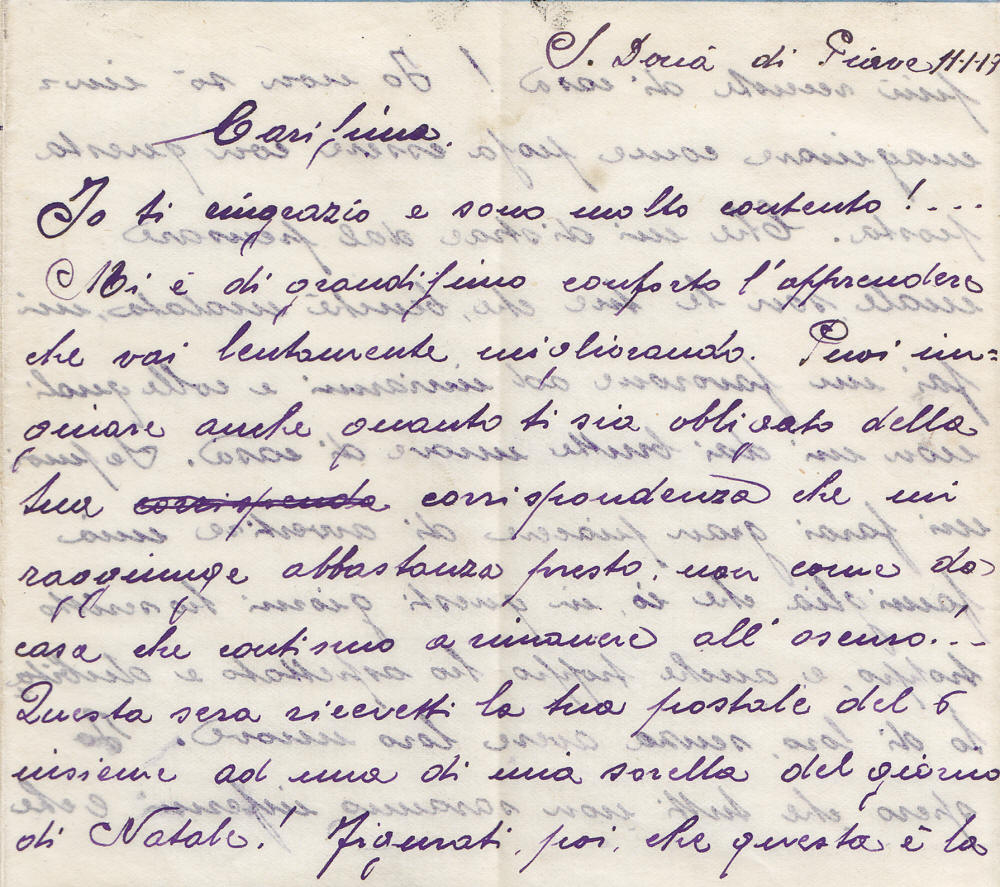 S. Donà di Piave 11-1-19
Carissima,
Io ti ringrazio e sono molto contento!....
Mi è di grandissimo conforto l'apprendere
che vai lentamente migliorando. Puoi im=
ginare anche quanto ti sia obligato della
tua corrisponda corrispondenza che mi
raggiunge abbastanza presto, non come da
casa che continuo a rimanere all'oscuro!..
Questa sera ricevetti la tua postale del 6
insieme ad una di mia sorella del giorno
di Natale! Figurati, poi, che questa è la